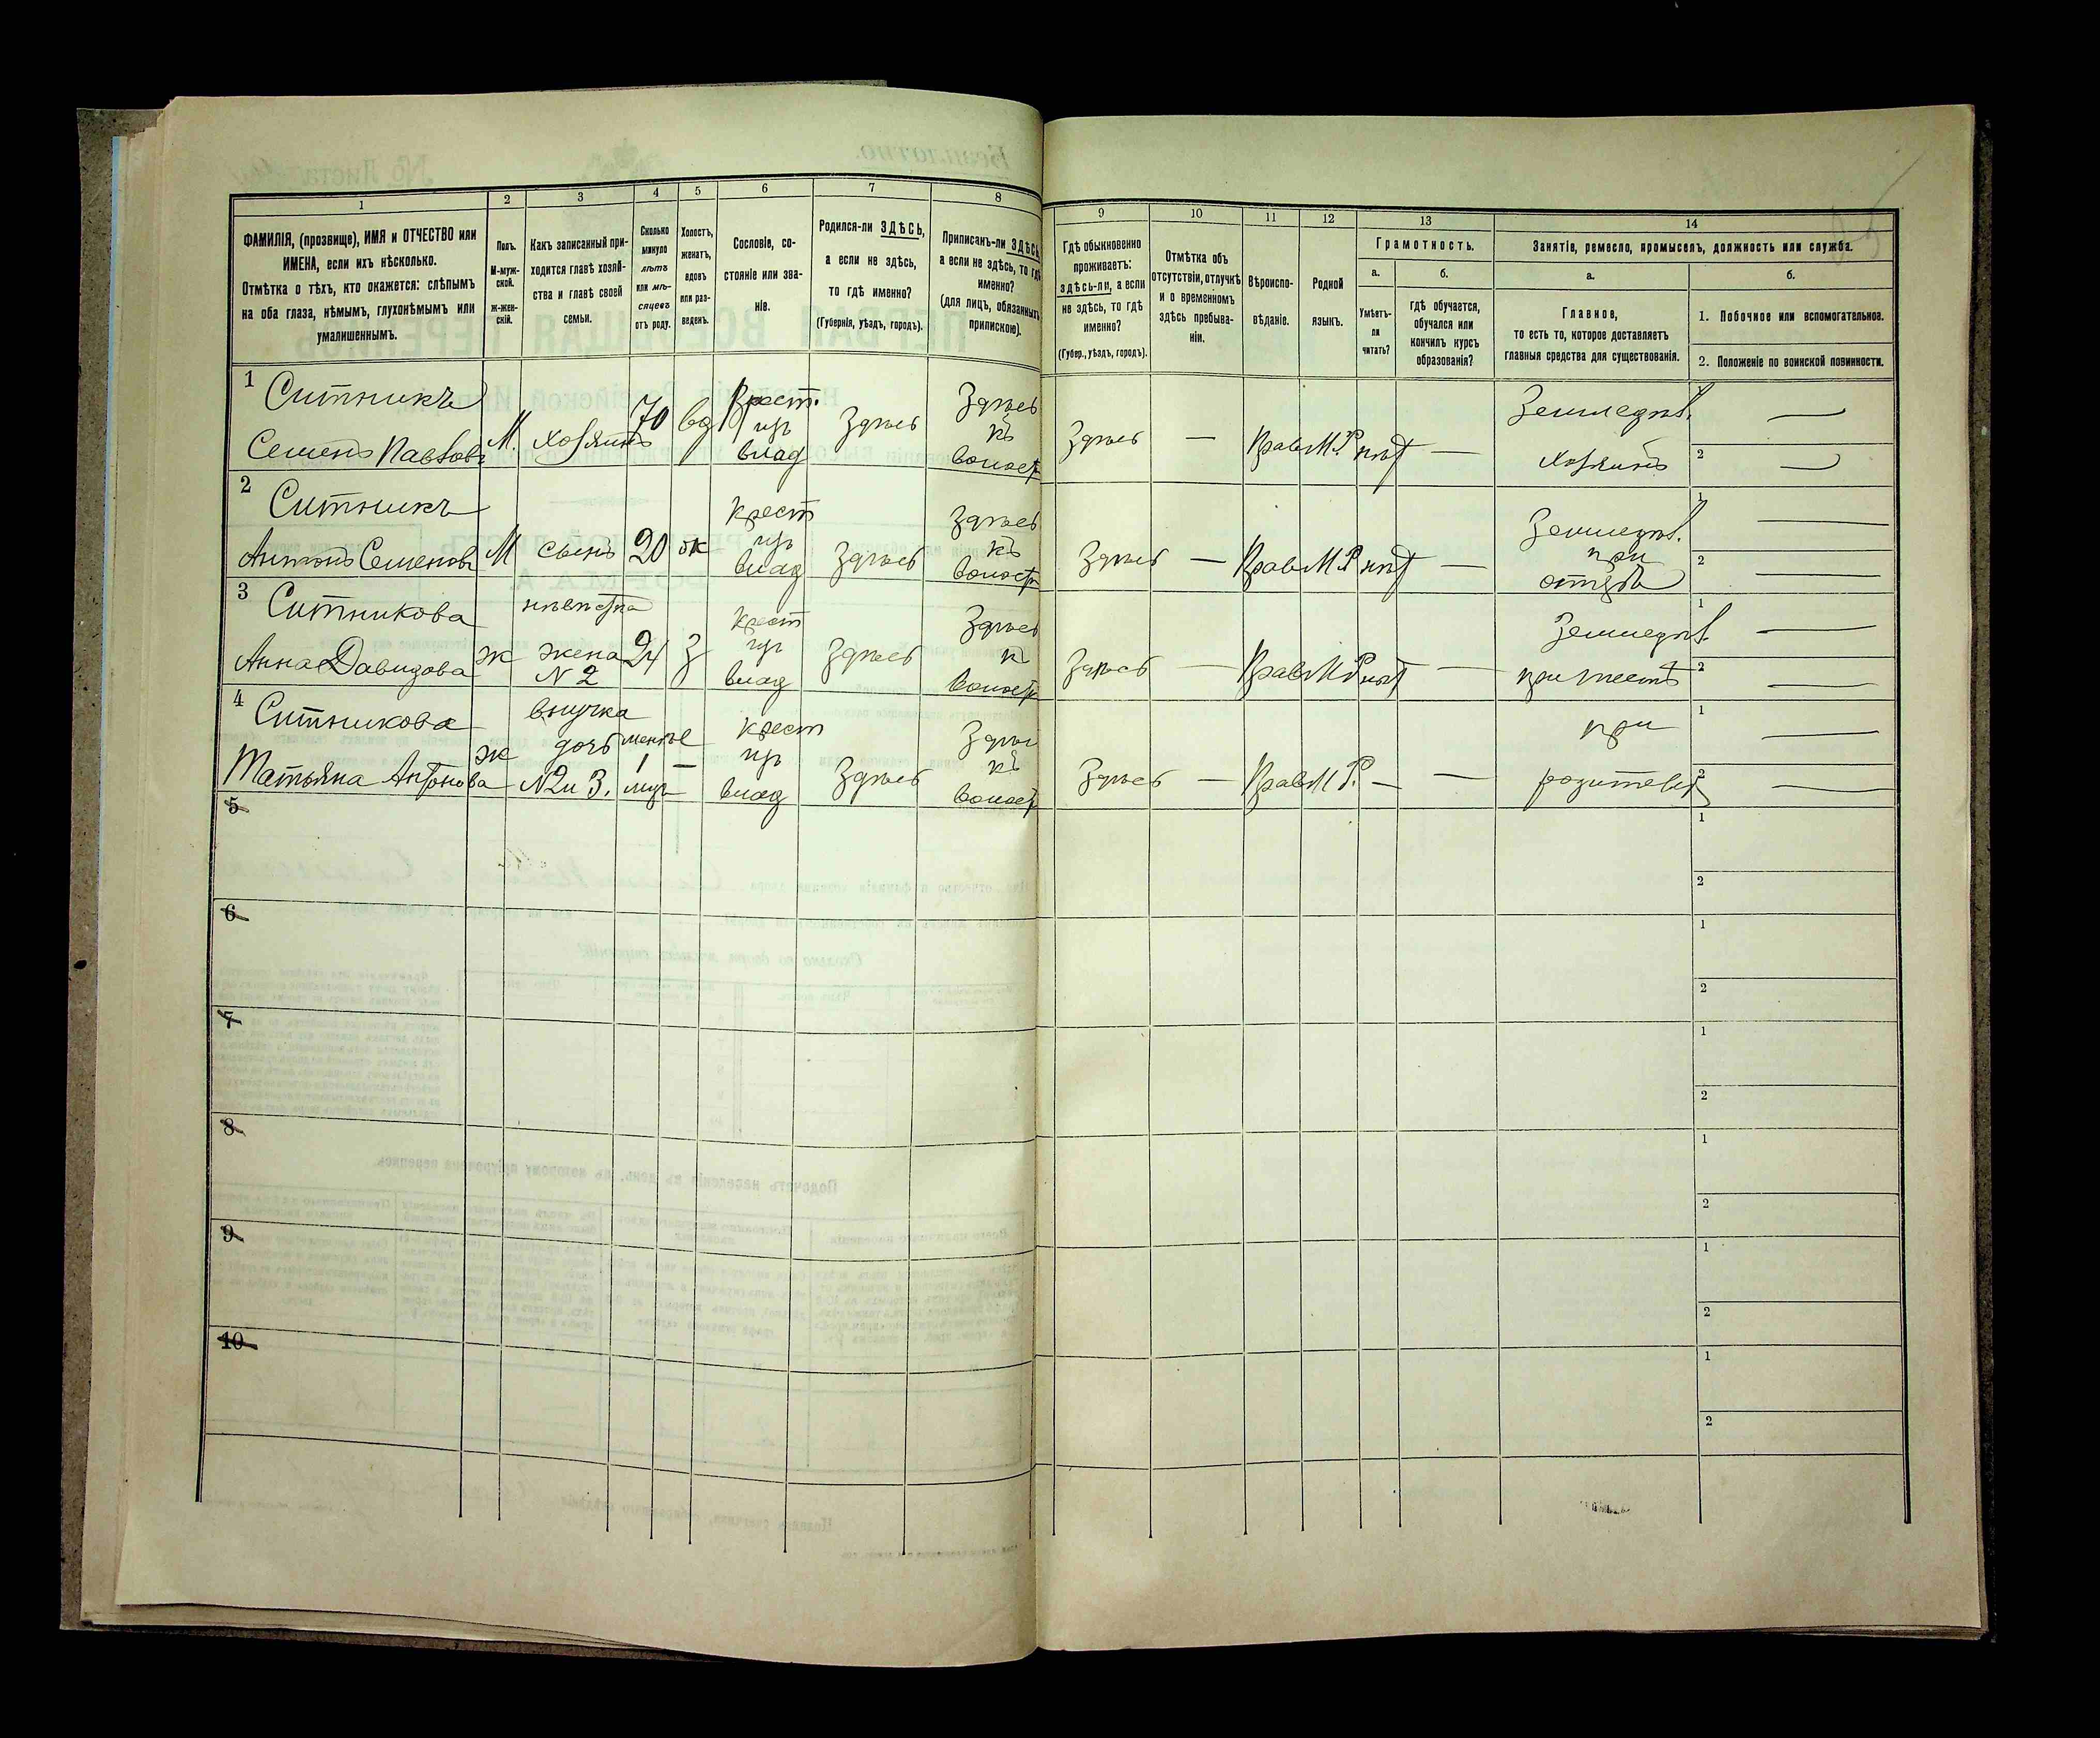 1
ФАМИЛІЯ, (прозвище), ИМЯ и ОТЧЕСТВО или
ИМЕНА, если ихъ нѣсколько.
Отмѣтка о тѣхъ, кто окажется: слѣпымъ
на оба глаза, нѣмымъ, глухонѣмымъ или
умалишеннымъ.
2
Полъ.
М-муж-
ской.
Ж-жен-
скій.
3
Какъ записанный при-
ходится главѣ хозяй-
ства и главѣ своей
семьи.
4
Сколько
минуло
лѣтъ
или мѣ-
сяцевъ
отъ роду.
5
Холостъ,
женатъ,
вдовъ
или раз-
веденъ.
6
Сословіе, со-
стояніе или зва-
ніе.
7
Родился-ли ЗДѢСЬ,
а если не здѣсь,
то гдѣ именно?
(Губернія, уѣздъ, городъ).
8
Приписанъ-ли ЗДѢСЬ,
а если не здѣсь, то гдѣ
именно?
(для лицъ, обязанныхъ
припискою).
9
Гдѣ обыкновенно
проживаетъ:
здѣсь-ли, а если
не здѣсь, то гдѣ
именно?
(Губер., уѣздъ, городъ).
10
Отмѣтка объ
отсутствіи, отлучкѣ
и о временномъ
здѣсь пребыва-
ніи.
11
Вѣроиспо-
вѣданіе.
12
Родной
языкъ.
13
Грамотность.
а.
Умѣетъ-
ли
читать?
б.
гдѣ обучается,
обучался или
кончилъ курсъ
образованія?
14
Занятіе, ремесло, промыселъ, должность или служба.
а.
Главное,
то есть то, которое доставляетъ
главныя средства для существованія.
б.
1. Побочное или вспомогательное.
2. Положеніе по воинской повинности.
1
Ситникъ
Семенъ Павловъ
М.
хозяинъ
70
вд
Крест.
изъ
влад
Здѣсь
Здѣсь
къ
волост
Здѣсь
—
Прав
М.Р.
нѣт
—
Земледѣл.
хозяинъ
—
2
2
Ситникъ
Антонъ Семеновъ
М
сынъ
20
жк
Крест
изъ
влад
Здѣсь
Здѣсь
къ
волост
Здѣсь
—
Прав
М.Р
нѣт
—
Земледѣл.
при
отцѣ
1
—
2
—
3
Ситникова
Анна Давидова
ж
невѣстка
жена
N 2
24
З
Крест
изъ
влад
Здѣсь
Здѣсь
к
волост
Здѣсь
—
Прав
М Р
нѣт
—
Земледѣл.
при тестѣ
1
—
2
—
4
Ситникова
Татьяна Антонова
ж
внучка
дочь
N2 и 3.
менѣе
1
мѣс
—
Крест
изъ
влад
Здѣсь
Здѣсь
къ
волост
Здѣсь
—
Прав
М Р.
—
—
при
родителях
1
—
2
—
5
1
2
6
1
2
7
1
2
8
1
2
9
1
2
10
1
2